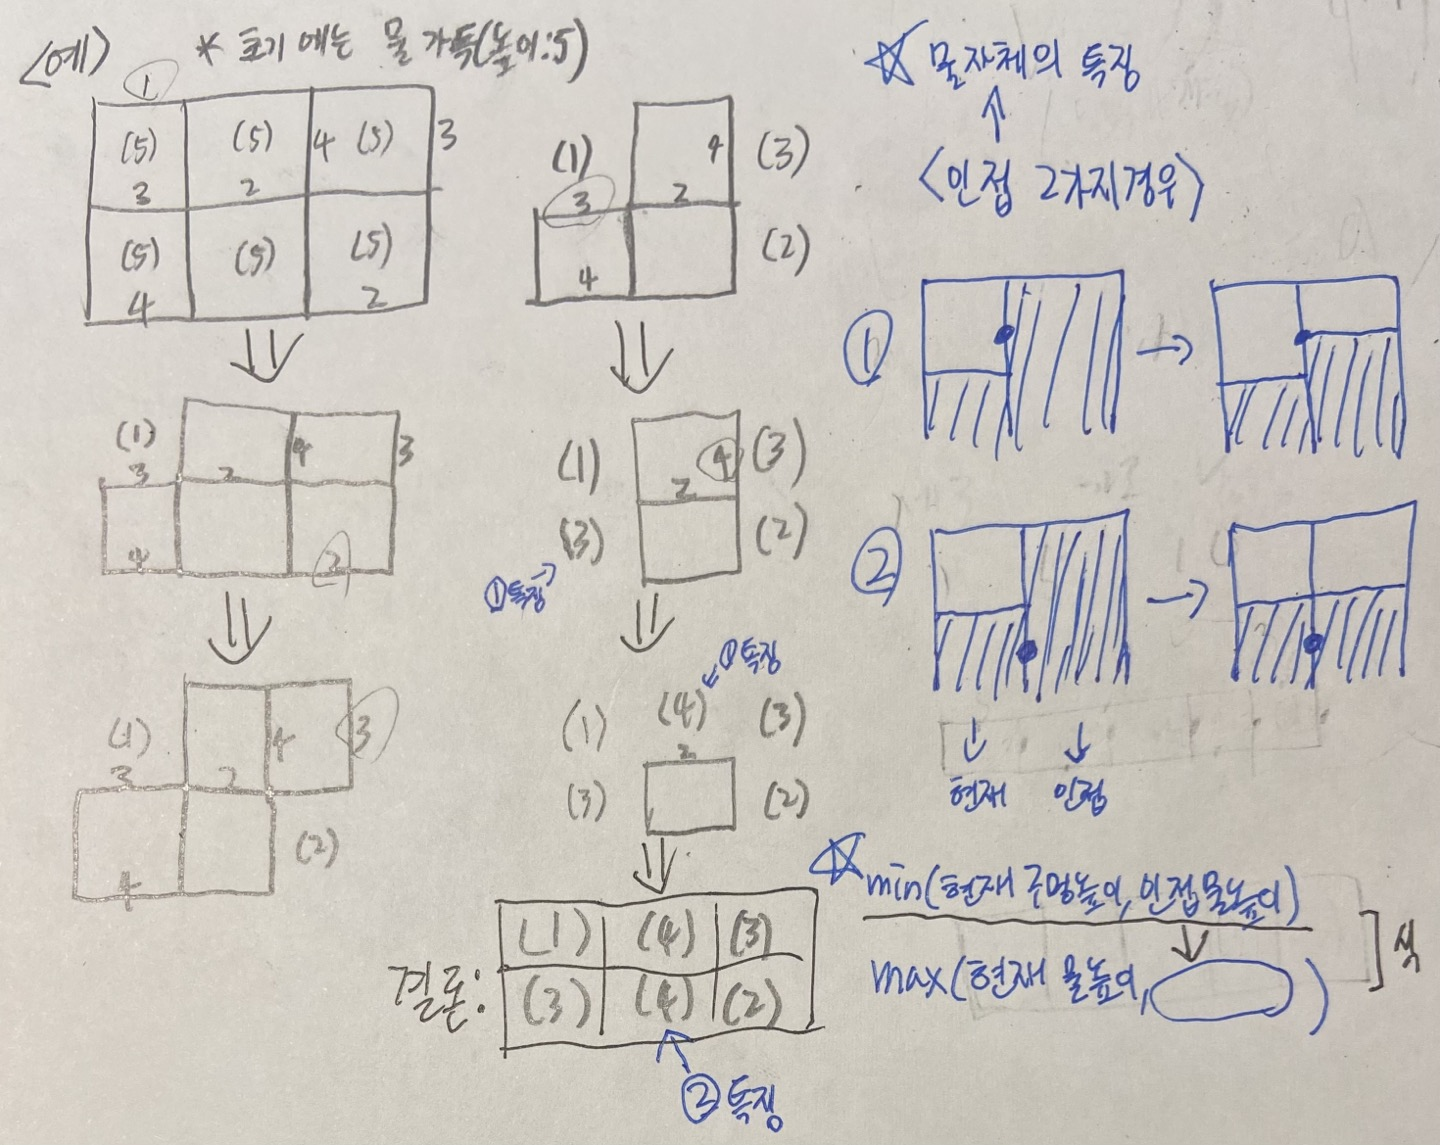 <예> * 초기에는 물 가득(높이:5)
①
(5) (5) 4 (5) 3
3 2
(5) (5) (5)
4 2
(1)
3 2 4 3
4 2
(1) 4 3
3 2
4 (2)
(1) 4 (3)
3 2
4 (2)
(1) 4 (3)
2
(3) (2)
①특징→
←①특징
(1) (4) (3)
2
(3) (2)
결론:
(1) (4) (3)
(3) (4) (2)
②특징
☆ 물 자체의 특징
↑
<인접 2가지경우>
① →
② →
현재 인접
☆ min(현재 구멍높이, 인접물높이)
max(현재 물높이, )
] 식